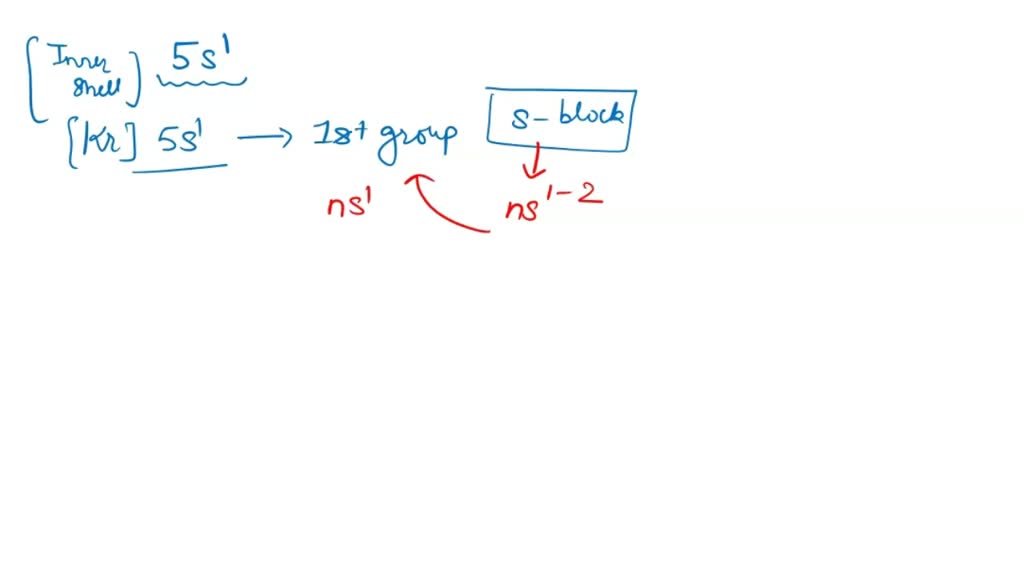 [Inner shell] 5s¹
[Kr] 5s¹ → 1st group s-block
ns¹ ns¹⁻²